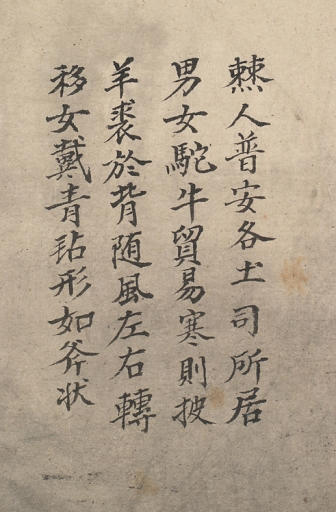 僰人普安各土司所居
男女駝牛貿易寒則披
羊裘於背随風左右轉
移女戴青㸃形如斧状